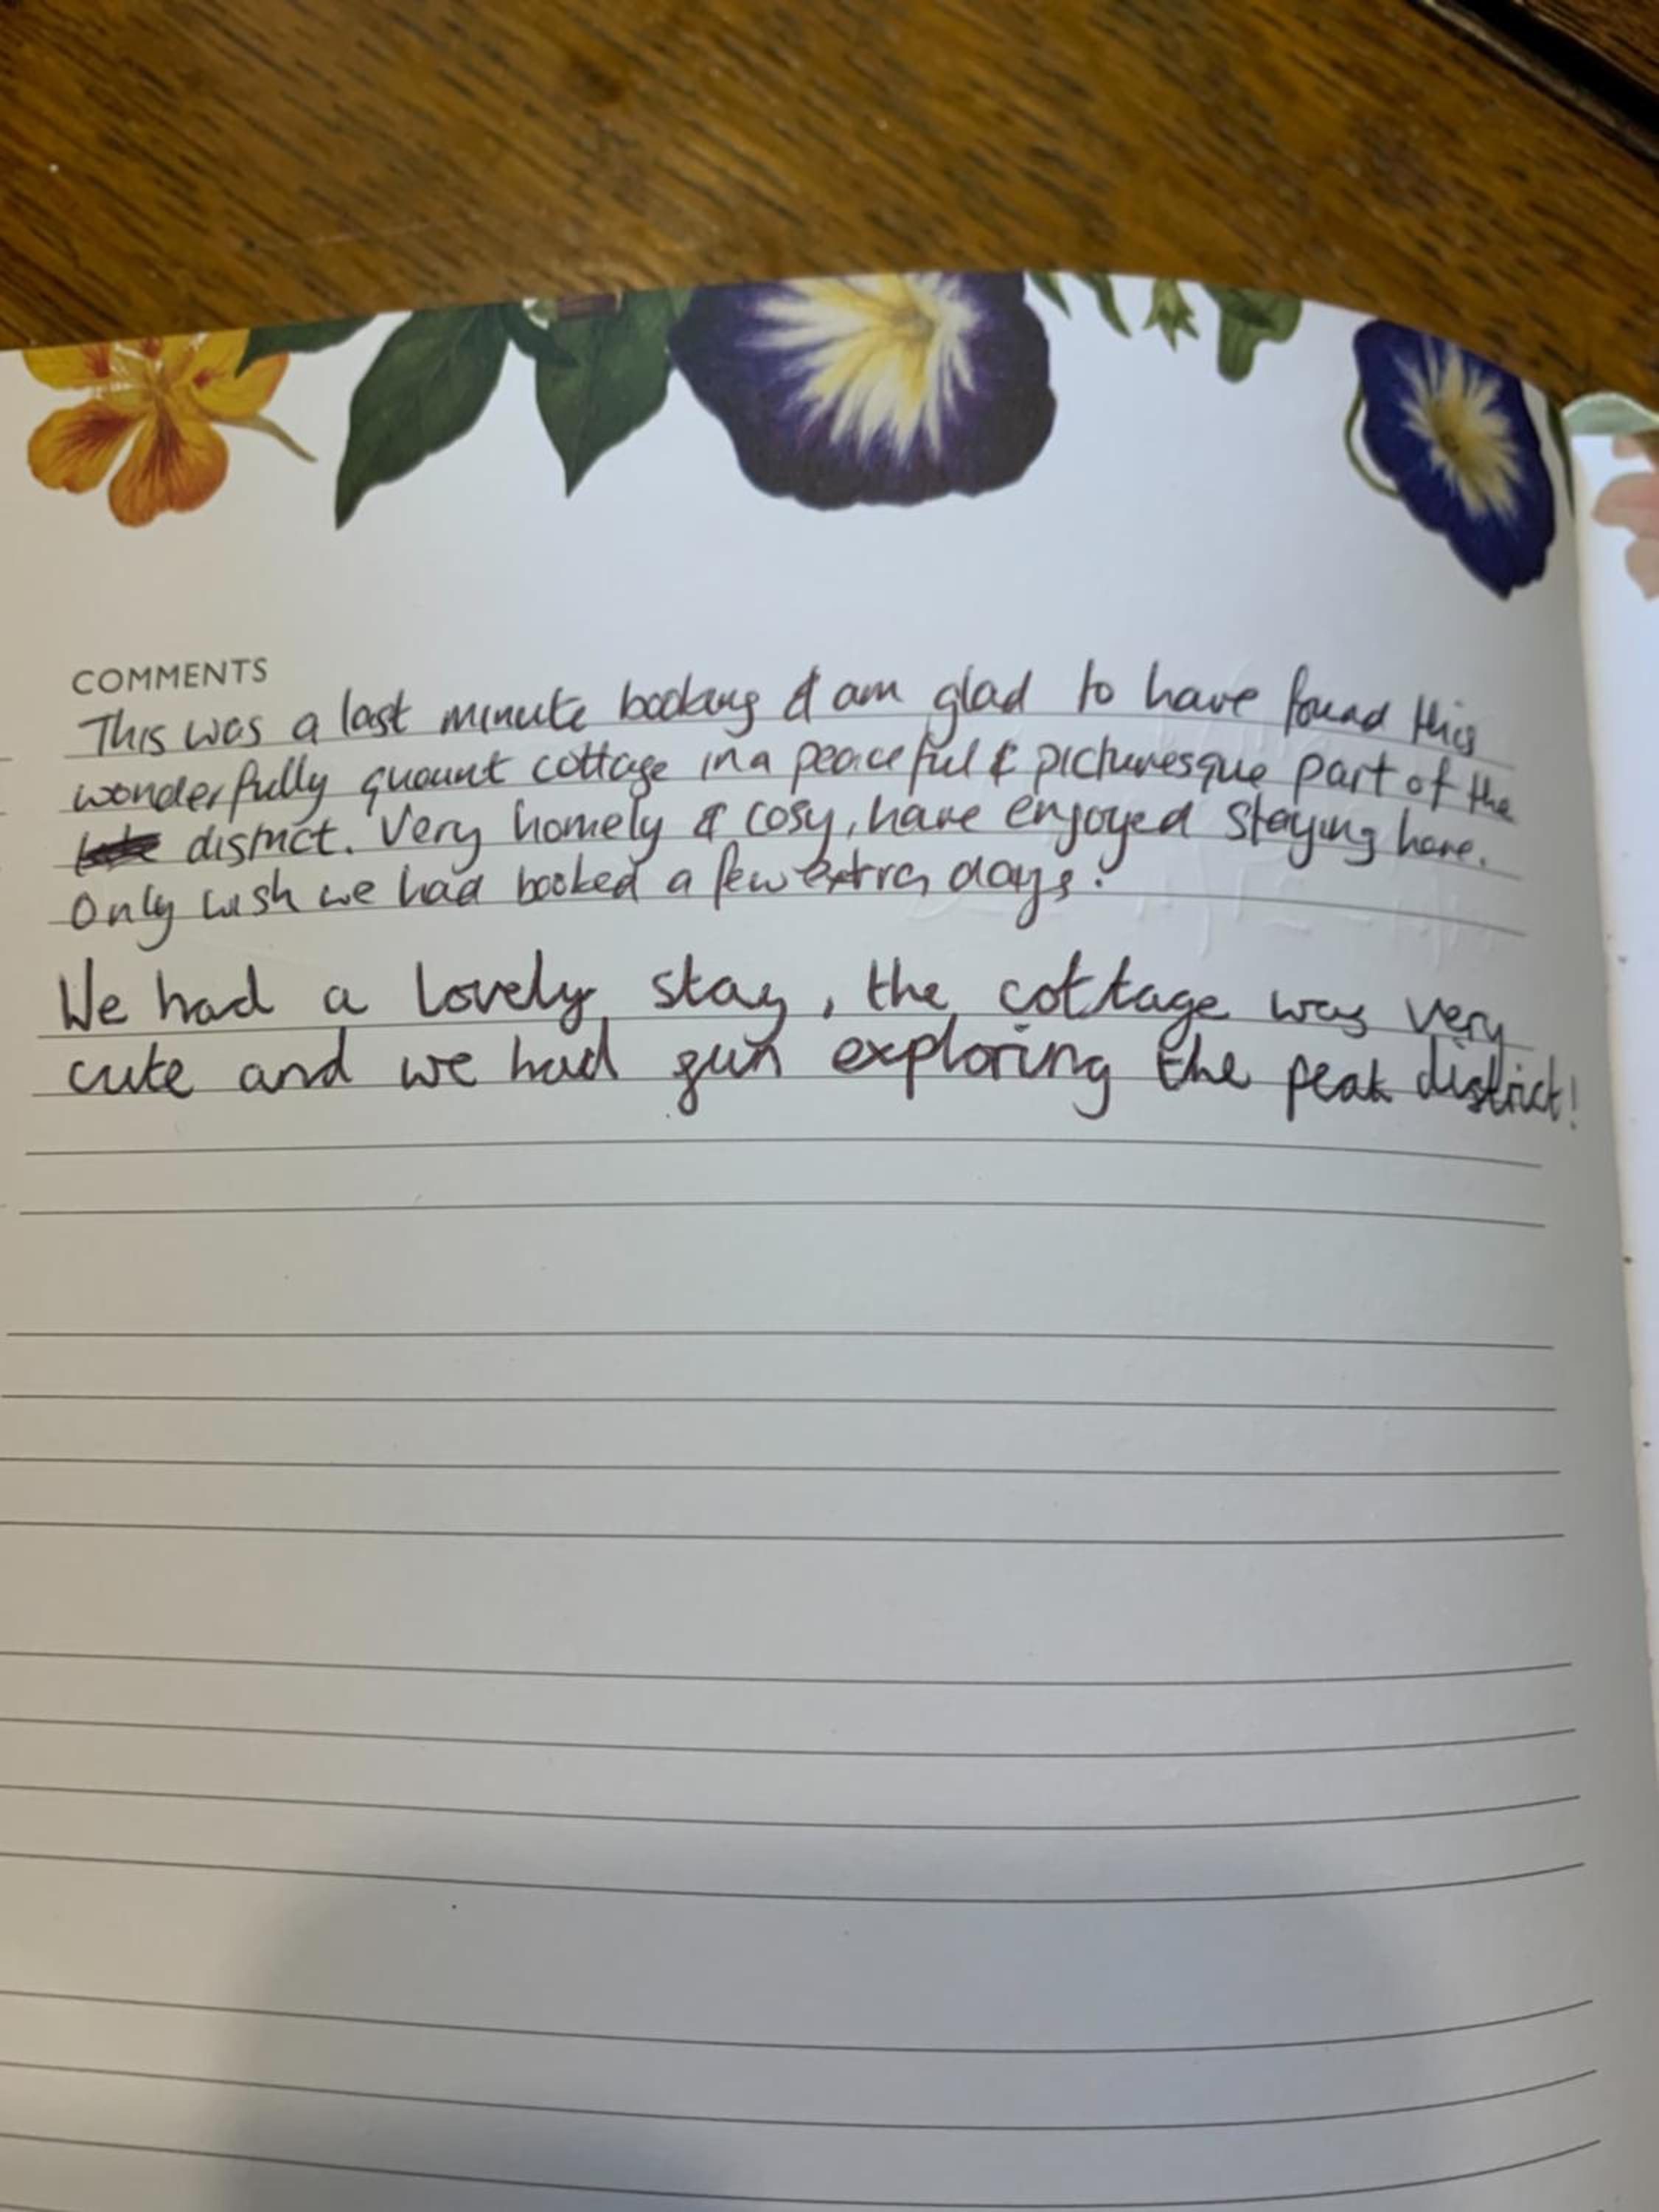 COMMENTS
This was a last minute booking & am glad to have found this
wonderfully quaunt cottage in a peaceful & picturesque part of the
district. Very homely & cosy, have enjoyed staying here.
Only wish we had booked a few extra days.
We had a lovely stay, the cottage was very
cute and we had gun exploring the peak district!